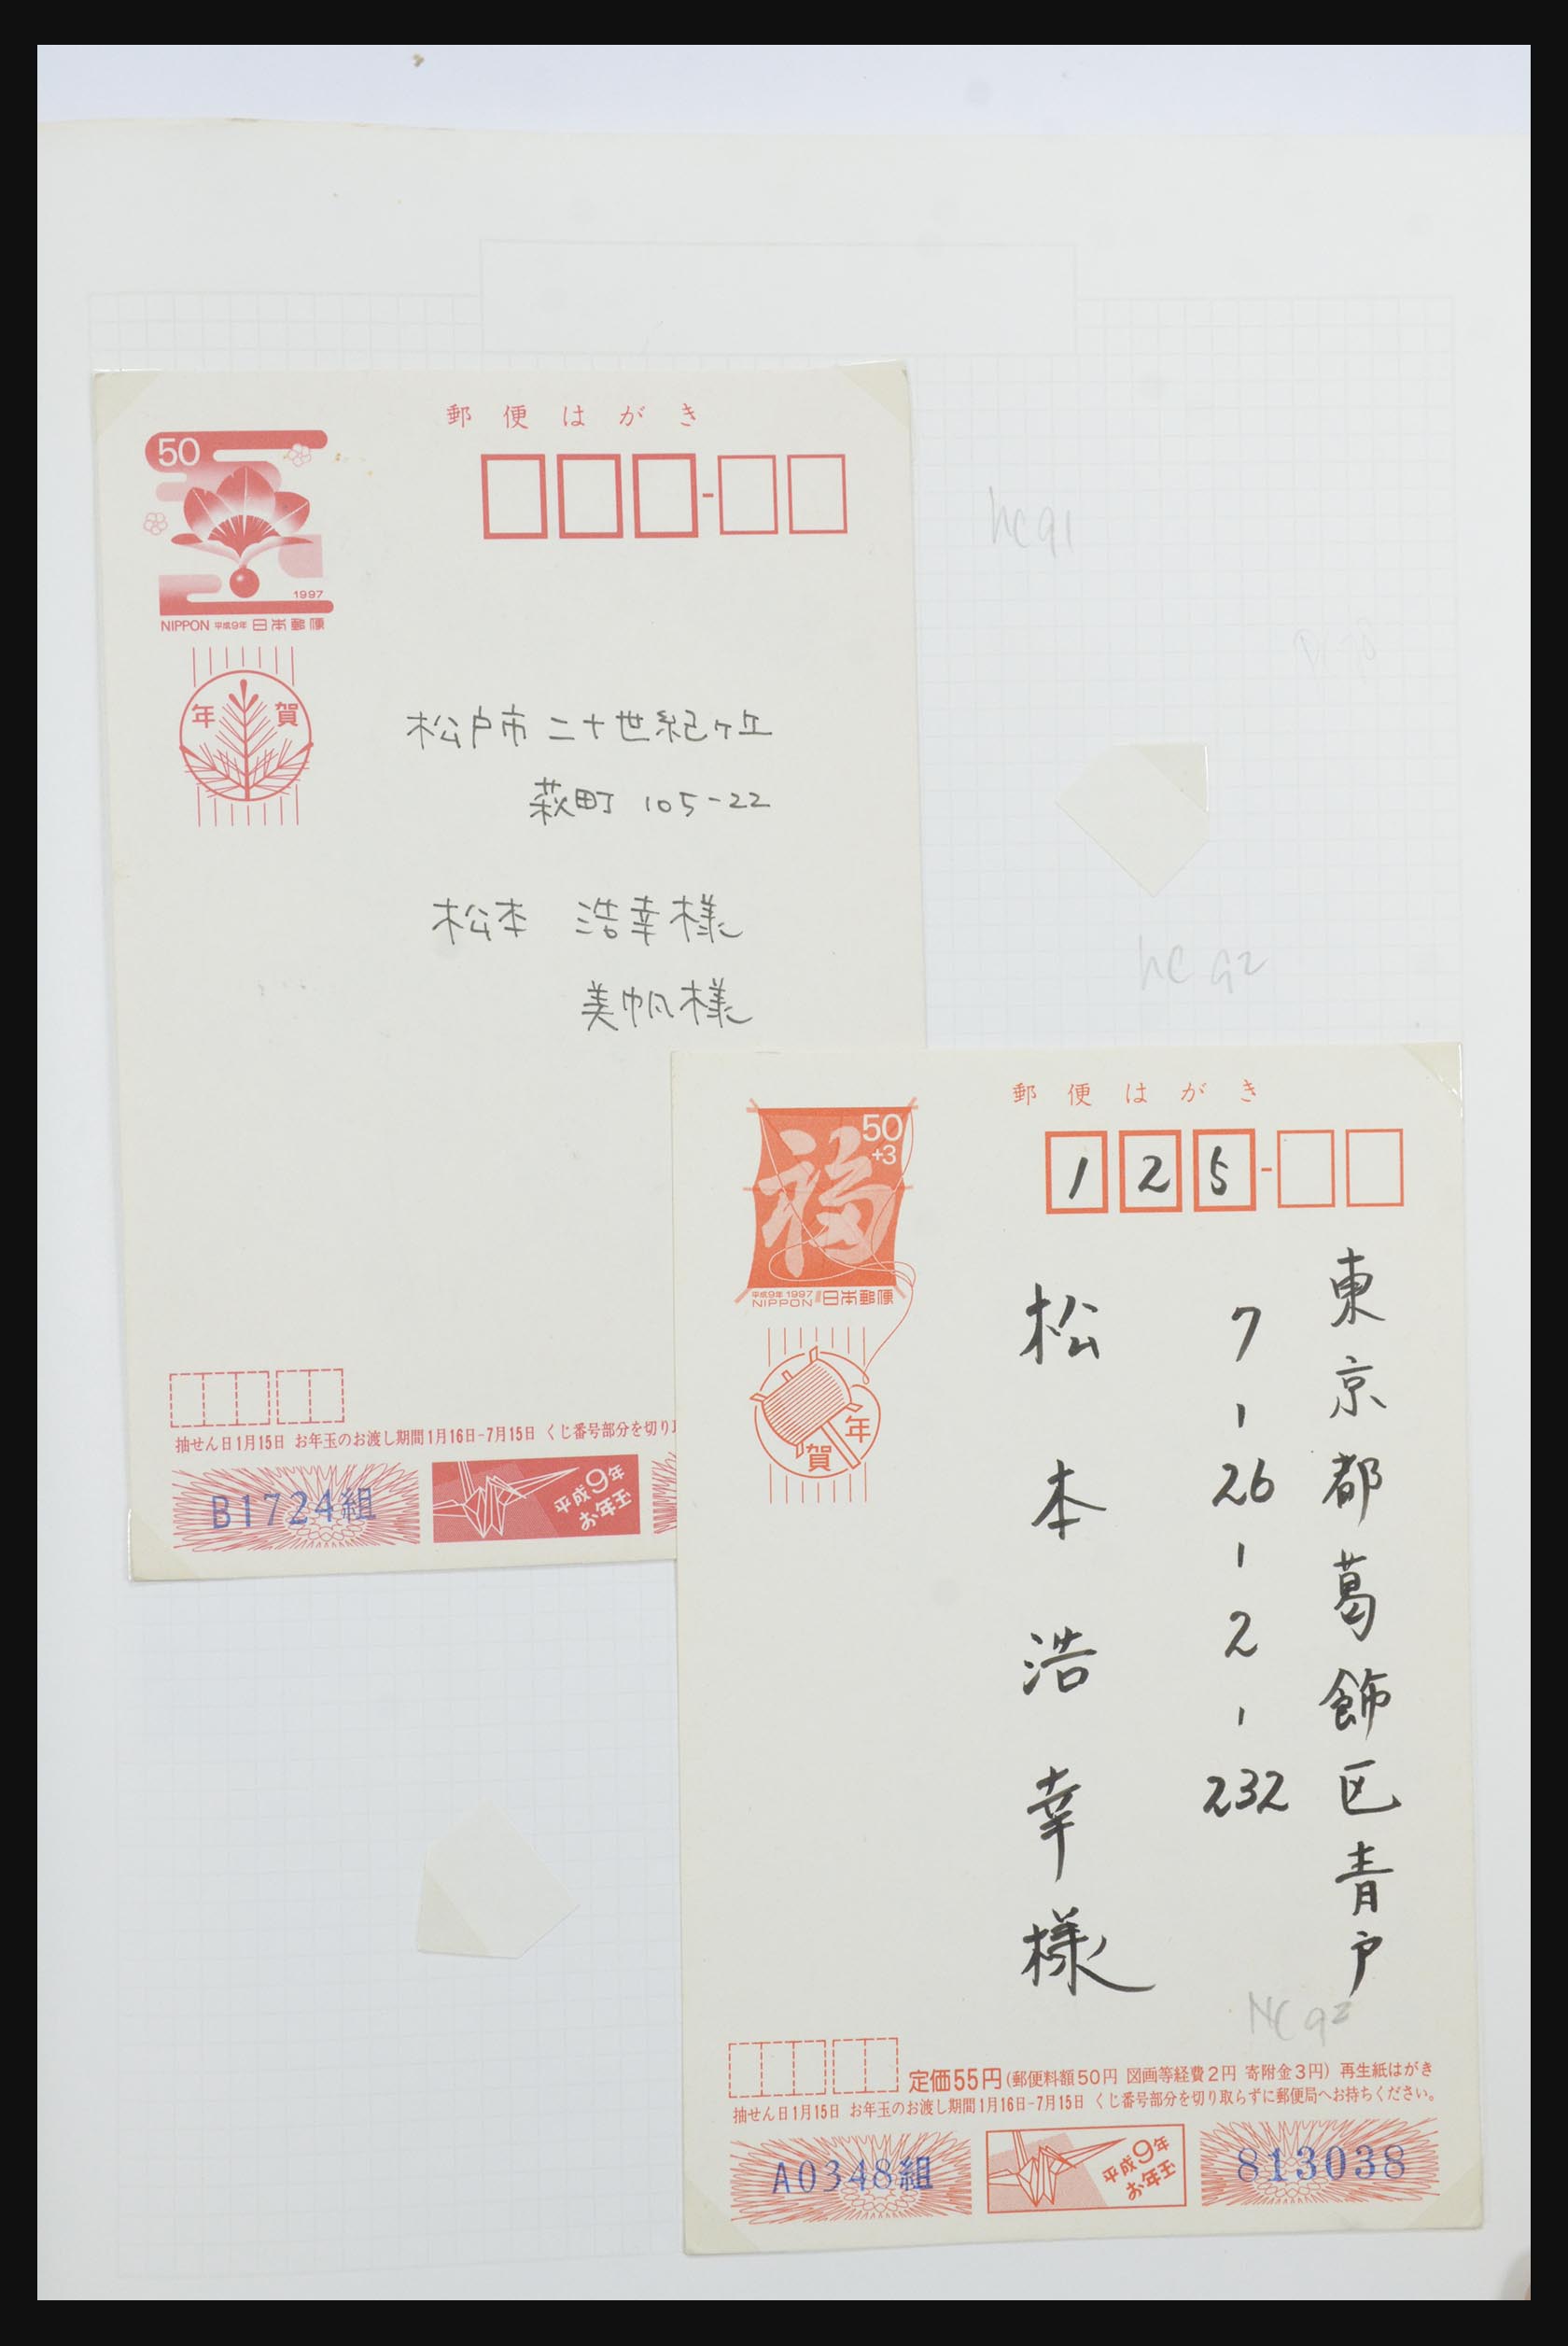 郵便はがき
50
1997
NIPPON 平成9年 日本郵便
年賀
松戸市二十世紀ヶ丘
萩町 105-22
松本 浩幸様
美帆様
抽せん日1月15日 お年玉のお渡し期間1月16日-7月15日 くじ番号部分を切り
B1724組
平成9年
お年玉
hc 91
hc 92
郵便はがき
50
+3
福
平成9年 1997
NIPPON 日本郵便
年賀
125
東京都葛飾区青戸
7-26-2-232
松本浩幸様
NC 92
定価55円(郵便料額50円 図画等経費2円 寄附金3円) 再生紙はがき
抽せん日1月15日 お年玉のお渡し期間1月16日-7月15日 くじ番号部分を切り取らずに郵便局へお持ちください。
A0348組
平成9年
お年玉
813038